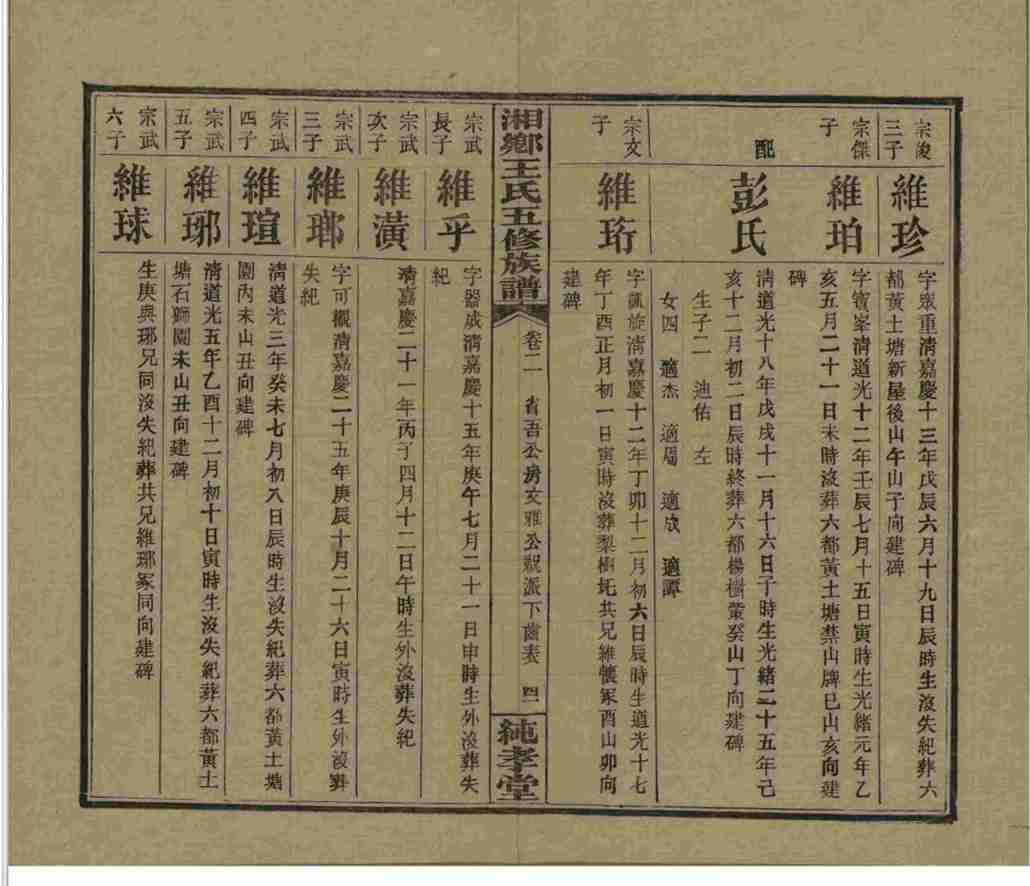 宗浚
三子
維珍
字眾重清嘉慶十三年戊辰六月十九日辰時生沒失紀葬六
都黃土塘新屋後山午山子向建碑
宗傑
子
維珀
字寶峯清道光十二年壬辰七月十五日寅時生光緒元年乙
亥五月二十一日未時沒葬六都黃土塘禁山牌巳山亥向建
碑
配
彭氏
清道光十八年戊戌十一月十六日子時生光緒二十五年己
亥十二月初二日辰時終葬六都楊樹 癸山丁向建碑
生子二 迪佑 左
女四 適杰 適周 適成 適譚
宗文
子
維珩
字 旋清嘉慶十二年丁卯十二月初六日辰時生道光十七
年丁酉正月初一日寅時沒葬梨樹 共兄維 冢酉山卯向
建碑
湘鄉王氏五修族譜
卷二
省吾公房文雅公 派下齒表
四一
純孝堂
宗武
長子
維乎
字器成清嘉慶十五年庚午七月二十一日申時生外沒葬失
紀
宗武
次子
維潢
清嘉慶二十一年丙子四月十二日午時生外沒葬失紀
宗武
三子
維瑯
字可觀清嘉慶二十五年庚辰十月二十六日寅時生外沒葬
失紀
宗武
四子
維瑄
清道光三年癸未七月初八日辰時生沒失紀葬六都黃土塘
園內未山丑向建碑
宗武
五子
維琊
清道光五年乙酉十二月初十日寅時生沒失紀葬六都黃土
塘石獅園未山丑向建碑
宗武
六子
維球
生庚與琊兄同沒失紀葬共兄維琊冢同向建碑